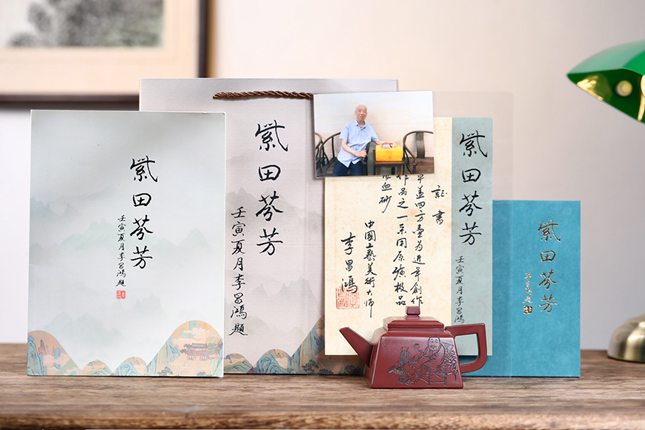 紫田芬芳
壬寅夏月李昌鸿题
紫田芬芳
壬寅夏月李昌鸿题
证书
盖四方壶为近年创作
作品之一采用原矿极品
血砂
中国工艺美术大师
李昌鸿
紫田芬芳
壬寅夏月李昌鸿
紫田芬芳